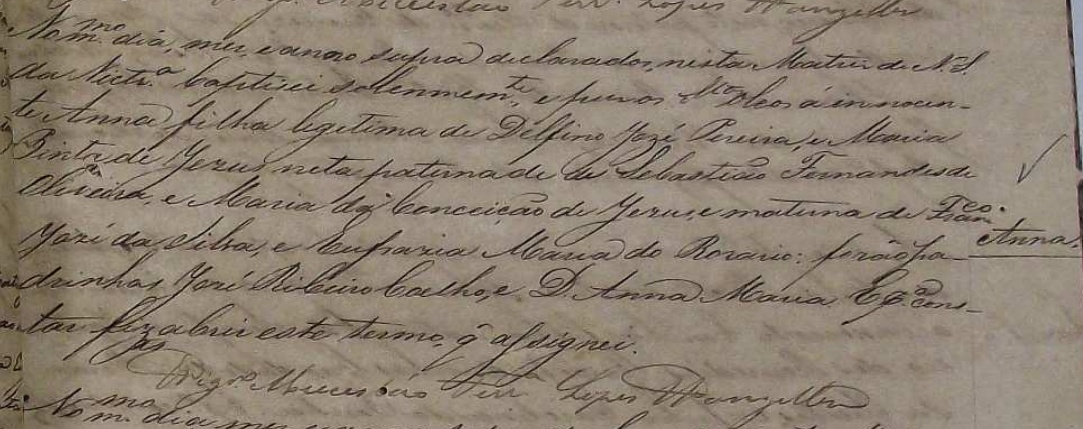 Lopes Wanzeller
No m.mo dia, mes, e anno supra declarados, nesta Matriz de N. S.
da Victr.a baptizei solennem.te, e puz os S.tos Oleos á innocen-
te Anna filha legitima de Delfino Jozé Pereira, e Maria
Pinta de Jezus, neta paterna de de Sebastião Fernandes de
Oliveira, e Maria da Conceição de Jezus, e materna de Fran.co
Jozé da Silva, e Eufrazia Maria do Rozario: forão pa-
Anna.
drinhos Jozé Ribeiro Coelho, e D. Anna Maria. E p.a cons-
tar fiz abrir este termo, q assignei.
Vigr.o Ferr.a Lopes Wanzeller
No m.mo dia mes